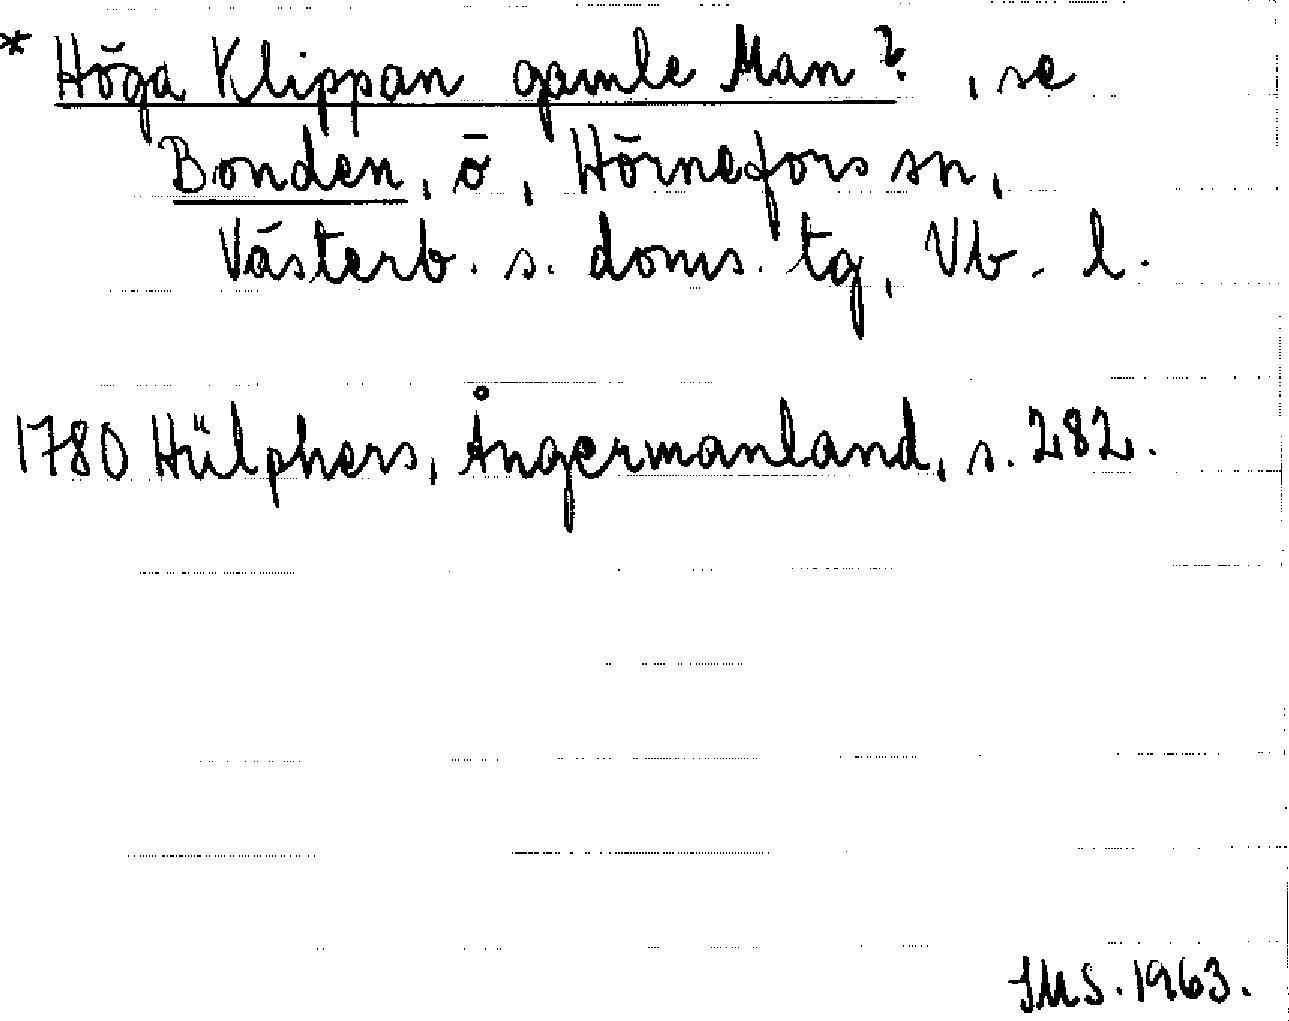 * Höga Klippan gamle Man? , se
Bonden, ö, Hörnefors sn,
Västerb. s. doms. tg, Vb. l.
1780 Hülphers, Ångermanland, s. 282.
SMS. 1963.